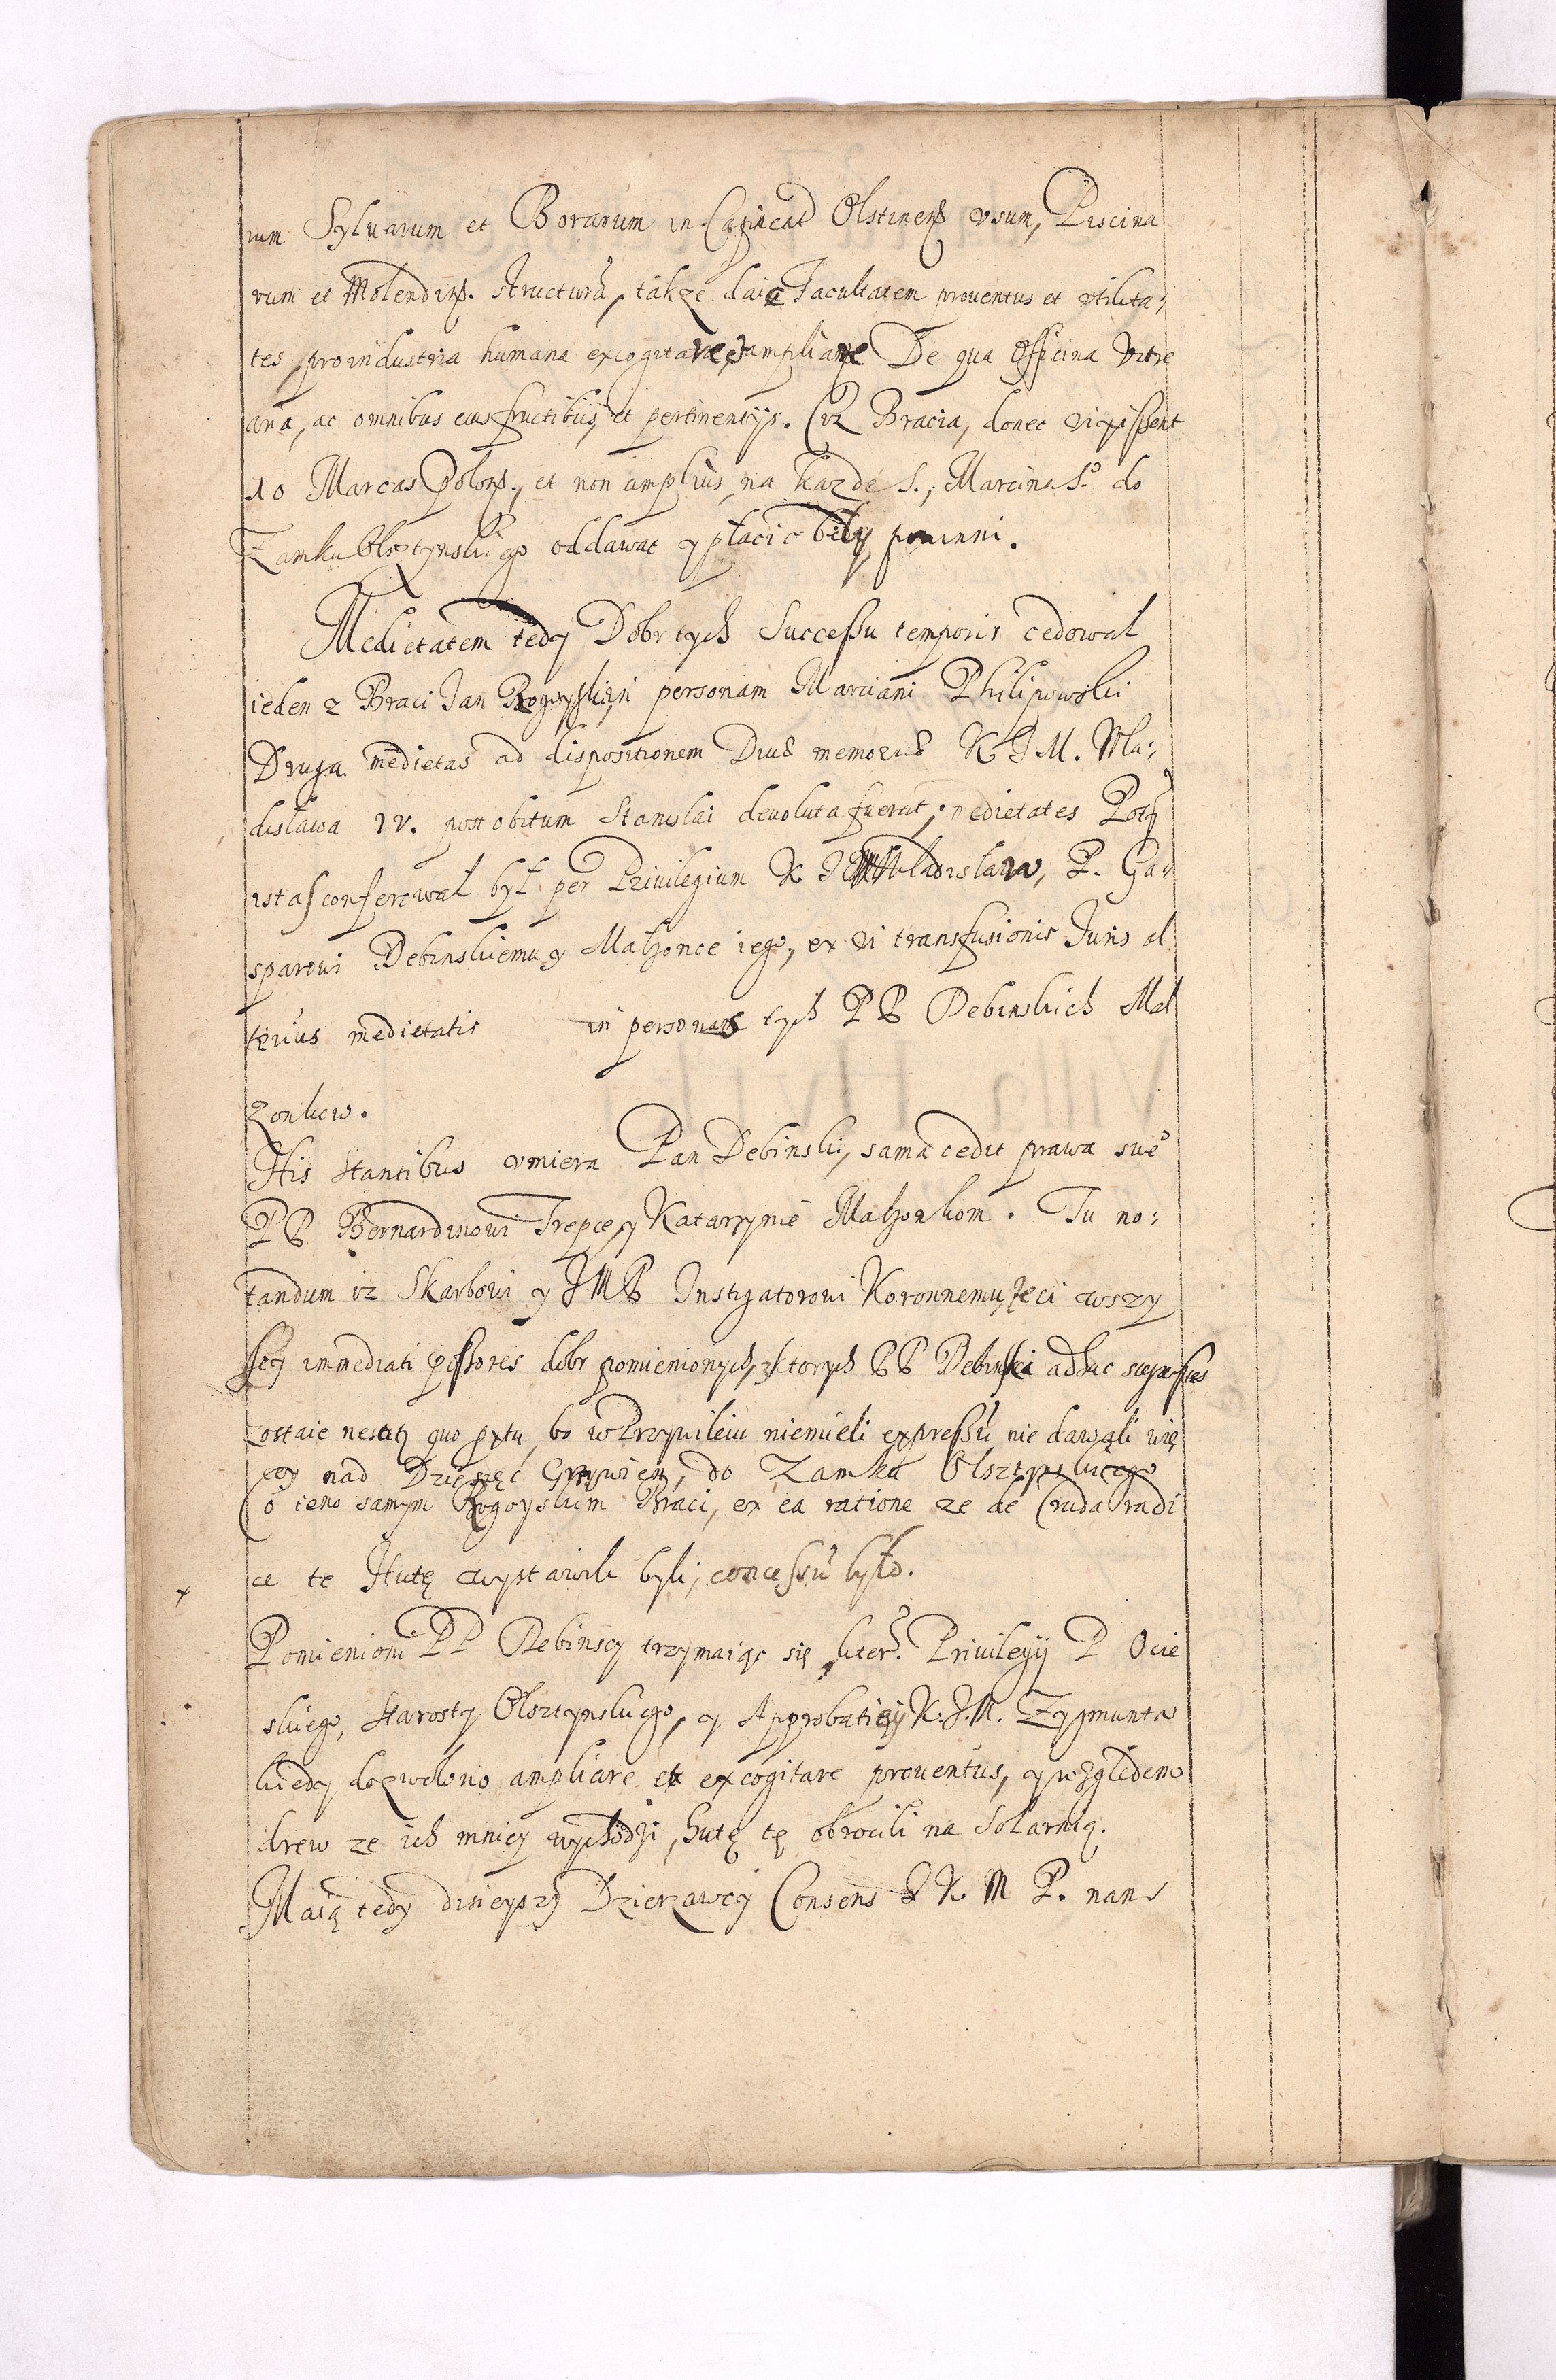 rum Sylvarum et Borarum in Capiteat Olstinens vsum, Piscina
rum et Molendinor. structura, takze daie Facultatem prouentus et vtilita:
tes pro industria humana excogitare et ampliare De qua Officina Vitre
aria, ac omnibus eius fructibus et pertinentijs. Ciz Bracia, donec vixissent
10 Marcas Polon., et non amplius na kazde S., Marcina So do
Zamku Olsztynskiego oddawac y płacic bely powinni.
Medietatem tedy Dobr tych Successu temporis cedował
ieden z Braci Jan Rogoyski in personam Marciani Philipowski
Druga medietas ad dispositionem Diuæ memoriæ K J M. Wla:
dislawa IV. post obitum Stanislai deuoluta fuerat; medietates Potym
istas conferował był per Priuilegium K J M Wladislaw, P. Ga:
sparowi Debinskiemu y Małzonce iego, ex vi transfusionis Juris al
terius medietatis in personas tych PP Debinskich Mał
zonkow.
His Stantibus vmiera Pan Debinski, sama cedit prawa swe
PP Bernardinowi Trepce y Katarzynie Małzonkom. Tu no:
tandum iz Skarbowi y JMP Instigatorowi Koronnemu, ze ci wszy
scy immediati possores dobr pomienionych, z ktorych PP Debinski adhuc superstes
zostaie nescitz quo pxtu, bo w Przywileiu niemieli expressu, nie dawali wię
cey nad Dziesięć Grzywien, do Zamku Olsztynskiego
Co teno samym Rogoyskim Braci, ex ea ratione ze de Cruda radi
ce te Hutę wystawili byli, concessu było.
Pomienioni PP Debinscy trzymaiąc się liter. Priuilegij P Ocie
skiego, Starosty Olsztynskiego, y Approbatiey K. J. M. Zygmunta
kiedy dozwolono ampliare et excogitare prouentus, y względem
drew ze ich mniey wychodzi, hutę tę obrocili na Solarnią.
Maią tedy dzisieyszy Dzierzawcy Consens J K M P. nan